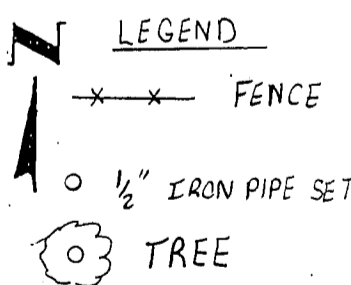 N LEGEND
FENCE
1/2" IRON PIPE SET
TREE